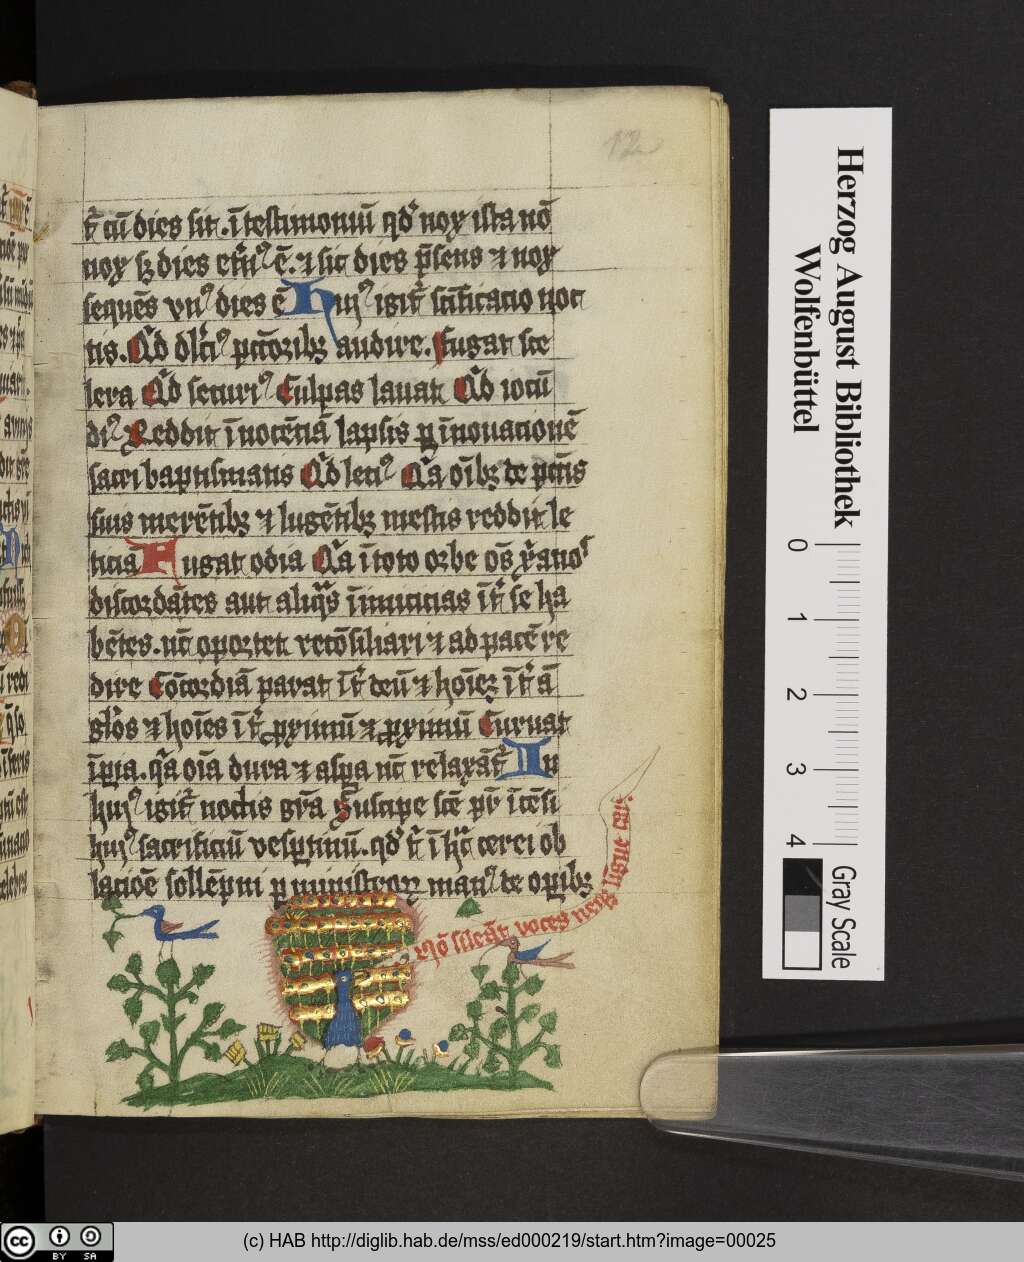 12
t̄r cū dies sit. ī testimoniū qd' nox ista nō
nox sꝫ dies et̄n⁹ ē. ⁊ sic dies p̄sens ⁊ nox
sequēs vn⁹ dies ē Huj⁹ igit̄ scīficacio noc
tis. Qd dlci⁹ pctōribꝫ audire. Fugat sce
lera Qd securi⁹ Culpas lavat Qd iocū
di⁹ Reddit īnocēciā lapsis ꝑ īnouacionē
sacri baptismatis Qd leci⁹ Qa oībꝫ de pctīs
suis merētibꝫ ⁊ lugētibꝫ mestis reddit le
ticiā Fugat odia Qa ī toto orbe oēs xpanos
discordātes aut aliqās īimicicias īt̄ se ha
bētes. nc̄ oportet recōsiliari ⁊ ad pacē re
dire Cōcordiā parat īt̄ deū ⁊ hoīeꝫ īt̄ ā
glōs ⁊ hoīes īt̄ ꝓximū ⁊ ꝓximū Curuat
īꝑia. qa oīa dura ⁊ aspa nc̄ relaxāt̄ In
huj⁹ igit̄ noctis grā Suscipe scē pr̄ īcēsi
huj⁹ sacrificiū vesꝑtinū. qd' t̄ ī hac cerei ob
lacioē sollēpni ꝑ ministrorꝝ man⁹ de oꝑibꝫ
Nō sileāt voces neqꝫ līgue cāt.
Herzog August Bibliothek
Wolfenbüttel
0 1 2 3 4
Gray Scale
cc BY SA
(c) HAB http://diglib.hab.de/mss/ed000219/start.htm?image=00025